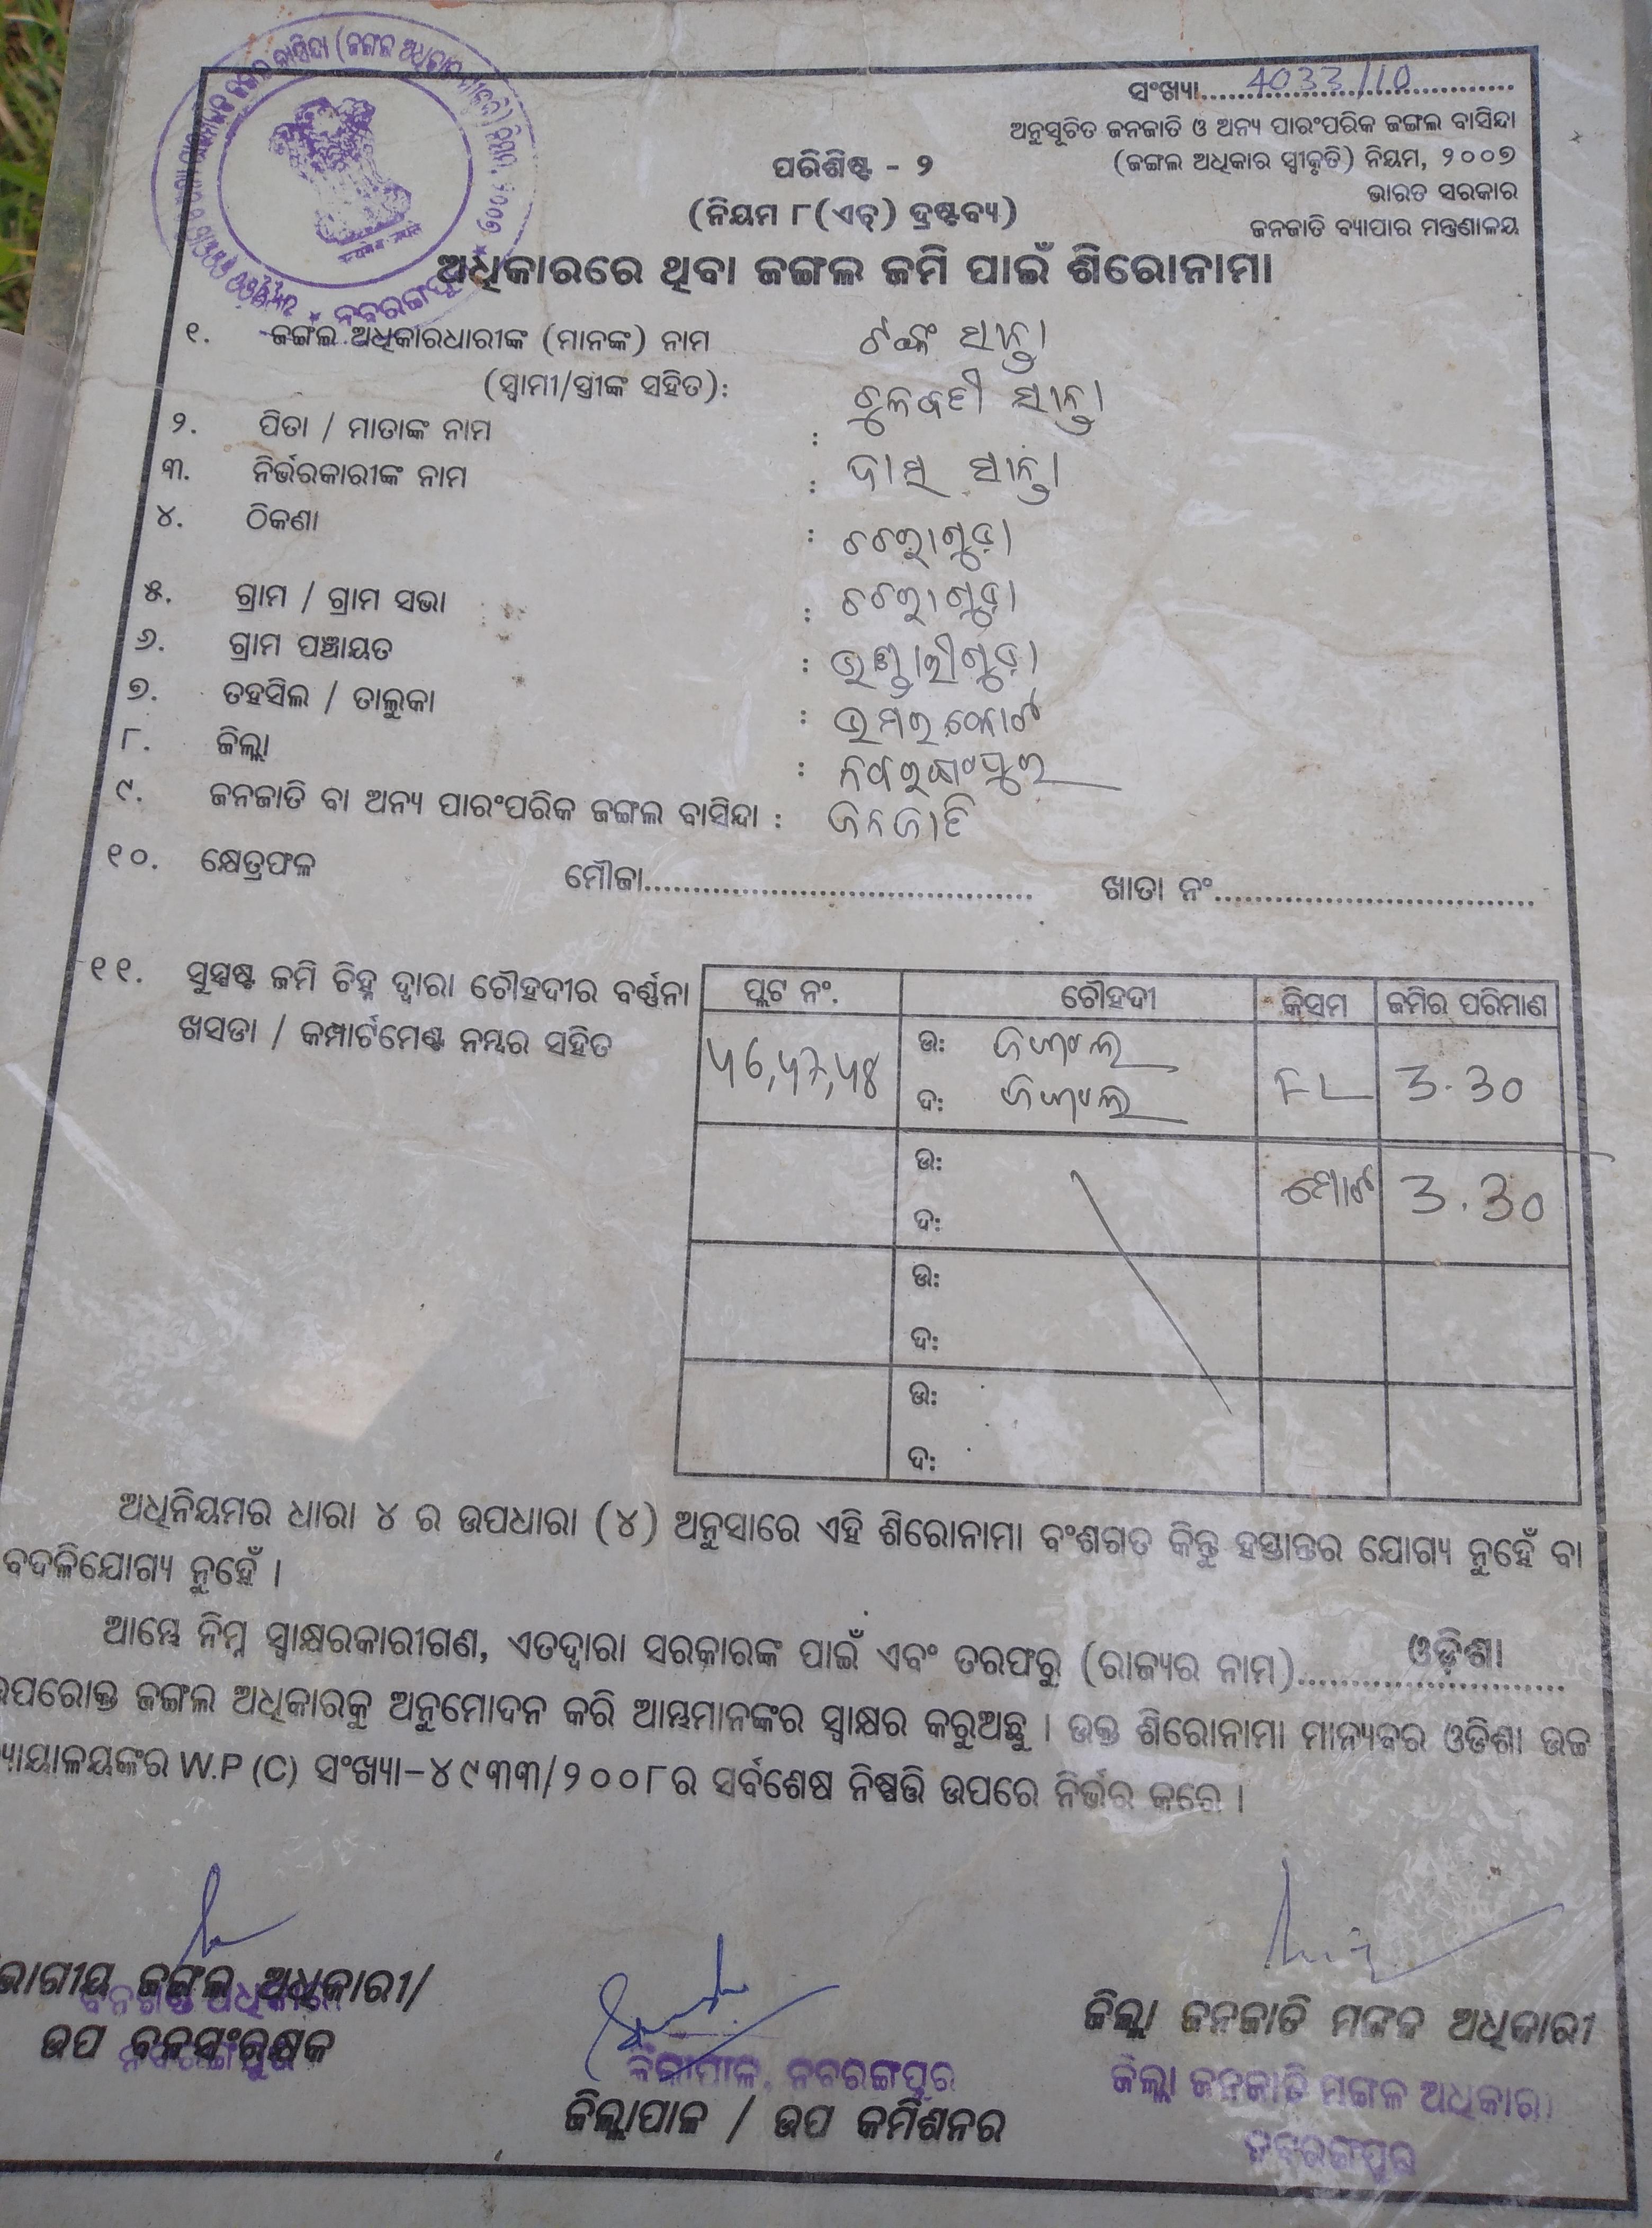 ସଂଖ୍ୟା 4033/10
ଅନୁସୂଚିତ ଜନଜାତି ଓ ଅନ୍ୟ ପାରଂପରିକ ଜଙ୍ଗଲ ବାସିନ୍ଦା
(ଜଙ୍ଗଲ ଅଧିକାର ସ୍ୱୀକୃତି) ନିୟମ, ୨୦୦୭
ଭାରତ ସରକାର
ଜନଜାତି ବ୍ୟାପାର ମନ୍ତ୍ରଣାଳୟ
ପରିଶିଷ୍ଟ - ୨
(ନିୟମ ୮(ଏଚ୍) ଦ୍ରଷ୍ଟବ୍ୟ)
ଅଧିକାରରେ ଥିବା ଜଙ୍ଗଲ ଜମି ପାଇଁ ଶିରୋନାମା
୧. ଜଙ୍ଗଲ ଅଧିକାରଧାରୀଙ୍କ (ମାନଙ୍କ) ନାମ ଟଙ୍କ ସାନ୍ତା
(ସ୍ୱାମୀ/ସ୍ତ୍ରୀଙ୍କ ସହିତ): ସାନ୍ତା
୨. ପିତା / ମାତାଙ୍କ ନାମ :
୩. ନିର୍ଭରକାରୀଙ୍କ ନାମ : ସାନ୍ତା
୪. ଠିକଣା :
୫. ଗ୍ରାମ / ଗ୍ରାମ ସଭା :
୬. ଗ୍ରାମ ପଞ୍ଚାୟତ : ଭଣ୍ଡାରୀଗୁଡ଼ା
୭. ତହସିଲ / ତାଲୁକା : ଉମରକୋଟ
୮. ଜିଲ୍ଲା : ନବରଙ୍ଗପୁର
୯. ଜନଜାତି ବା ଅନ୍ୟ ପାରଂପରିକ ଜଙ୍ଗଲ ବାସିନ୍ଦା : ଜନଜାତି
୧୦. କ୍ଷେତ୍ରଫଳ ମୌଜା ଖାତା ନଂ
୧୧. ସୁସ୍ପଷ୍ଟ ଜମି ଚିହ୍ନ ଦ୍ୱାରା ଚୌହଦୀର ବର୍ଣ୍ଣନା
ଖସଡା / କମ୍ପାର୍ଟମେଣ୍ଟ ନମ୍ବର ସହିତ
ପ୍ଲଟ ନଂ. ଚୌହଦୀ କିସମ ଜମିର ପରିମାଣ
ଉ: ଜଙ୍ଗଲ
ଦ: ଜଙ୍ଗଲ FL 3.30
ଉ:
ଦ: ମୋଟ 3.30
ଉ:
ଦ:
ଉ:
ଦ:
ଅଧିନିୟମର ଧାରା ୪ ର ଉପଧାରା (୪) ଅନୁସାରେ ଏହି ଶିରୋନାମା ବଂଶଗତ କିନ୍ତୁ ହସ୍ତାନ୍ତର ଯୋଗ୍ୟ ନୁହେଁ ବା
ବଦଳିଯୋଗ୍ୟ ନୁହେଁ ।
ଆମ୍ଭେ ନିମ୍ନ ସ୍ୱାକ୍ଷରକାରୀଗଣ, ଏତଦ୍ୱାରା ସରକାରଙ୍କ ପାଇଁ ଏବଂ ତରଫରୁ (ରାଜ୍ୟର ନାମ) ଓଡ଼ିଶା
ଉପରୋକ୍ତ ଜଙ୍ଗଲ ଅଧିକାରକୁ ଅନୁମୋଦନ କରି ଆମ୍ଭମାନଙ୍କର ସ୍ୱାକ୍ଷର କରୁଅଛୁ । ଉକ୍ତ ଶିରୋନାମା ମାନ୍ୟବର ଓଡିଶା ଉଚ୍ଚ
ନ୍ୟାୟାଳୟଙ୍କର W.P (C) ସଂଖ୍ୟା-୪୯୩୩/୨୦୦୮ର ସର୍ବଶେଷ ନିଷ୍ପତ୍ତି ଉପରେ ନିର୍ଭର କରେ ।
ଜଙ୍ଗଲ ଅଧିକାରୀ/
ଉପ ବନସଂରକ୍ଷକ
ଜିଲ୍ଲାପାଳ, ନବରଙ୍ଗପୁର
ଜିଲ୍ଲାପାଳ / ଉପ କମିଶନର
ଜିଲ୍ଲା ଜନଜାତି ମଙ୍ଗଳ ଅଧିକାରୀ
ଜିଲ୍ଲା ଜନଜାତି ମଙ୍ଗଳ ଅଧିକାରୀ
ନବରଙ୍ଗପୁର